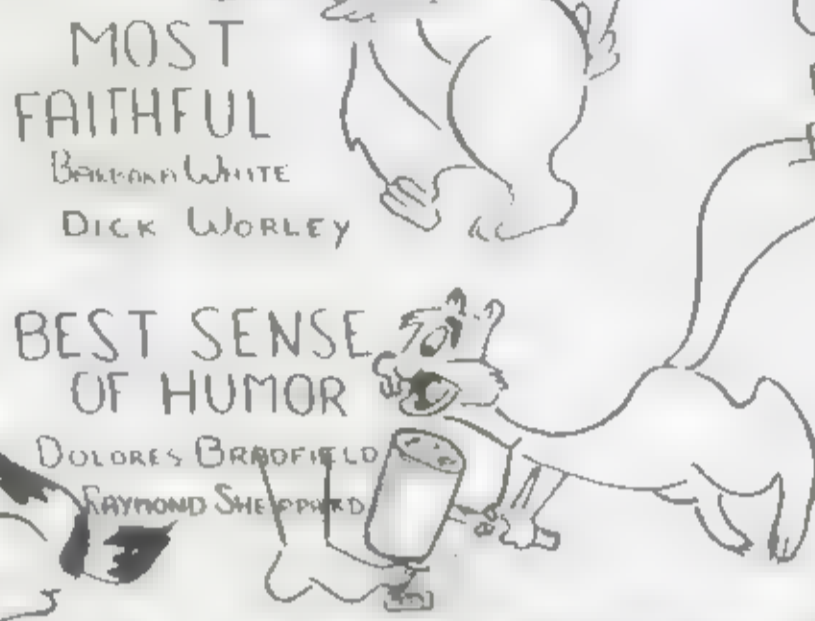 MOST
FAITHFUL
BARBARA WHITE
DICK WORLEY
BEST SENSE
OF HUMOR
DOLORES BRADFIELD
RAYMOND SHEPPARD